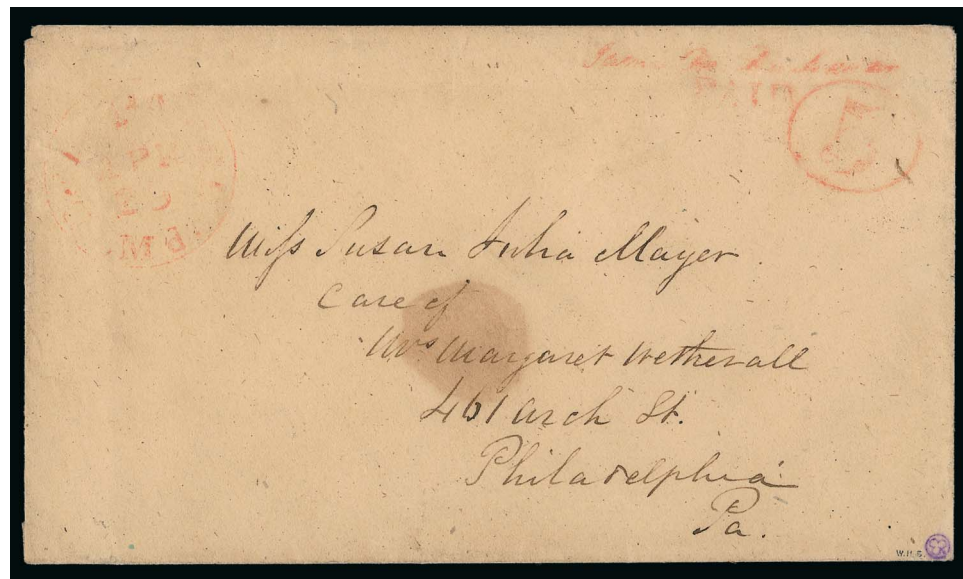 PAID
5
Miss Susan Julia Mayer
Care of
Mrs Margaret Wetherall
461 Arch St.
Philadelphia
Pa.
W.H.C.